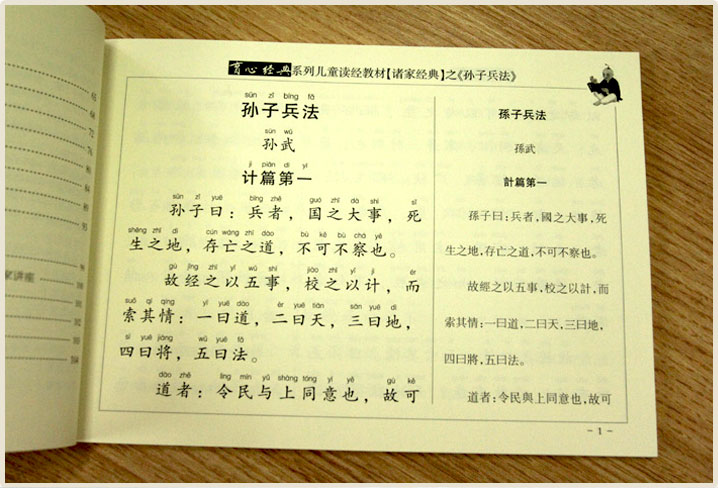 家讲座
育心经典系列儿童读经教材【诸家经典】之《孙子兵法》
sūn zǐ bīng fǎ
孙子兵法
sūn wǔ
孙武
jì piān dì yī
计篇第一
sūn zǐ yuē bīng zhě guó zhī dà shì sǐ
孙子曰：兵者，国之大事，死
shēng zhī dì cún wáng zhī dào bù kě bù chá yě
生之地，存亡之道，不可不察也。
gù jīng zhī yǐ wǔ shì jiào zhī yǐ jì ér
故经之以五事，校之以计，而
suǒ qí qíng yī yuē dào èr yuē tiān sān yuē dì
索其情：一曰道，二曰天，三曰地，
sì yuē jiàng wǔ yuē fǎ
四曰将，五曰法。
dào zhě lìng mín yǔ shàng tóng yì yě gù kě
道者：令民与上同意也，故可
孫子兵法
孫武
計篇第一
孫子曰：兵者，國之大事，死
生之地，存亡之道，不可不察也。
故經之以五事，校之以計，而
索其情：一曰道，二曰天，三曰地，
四曰將，五曰法。
道者：令民與上同意也，故可
- 1 -